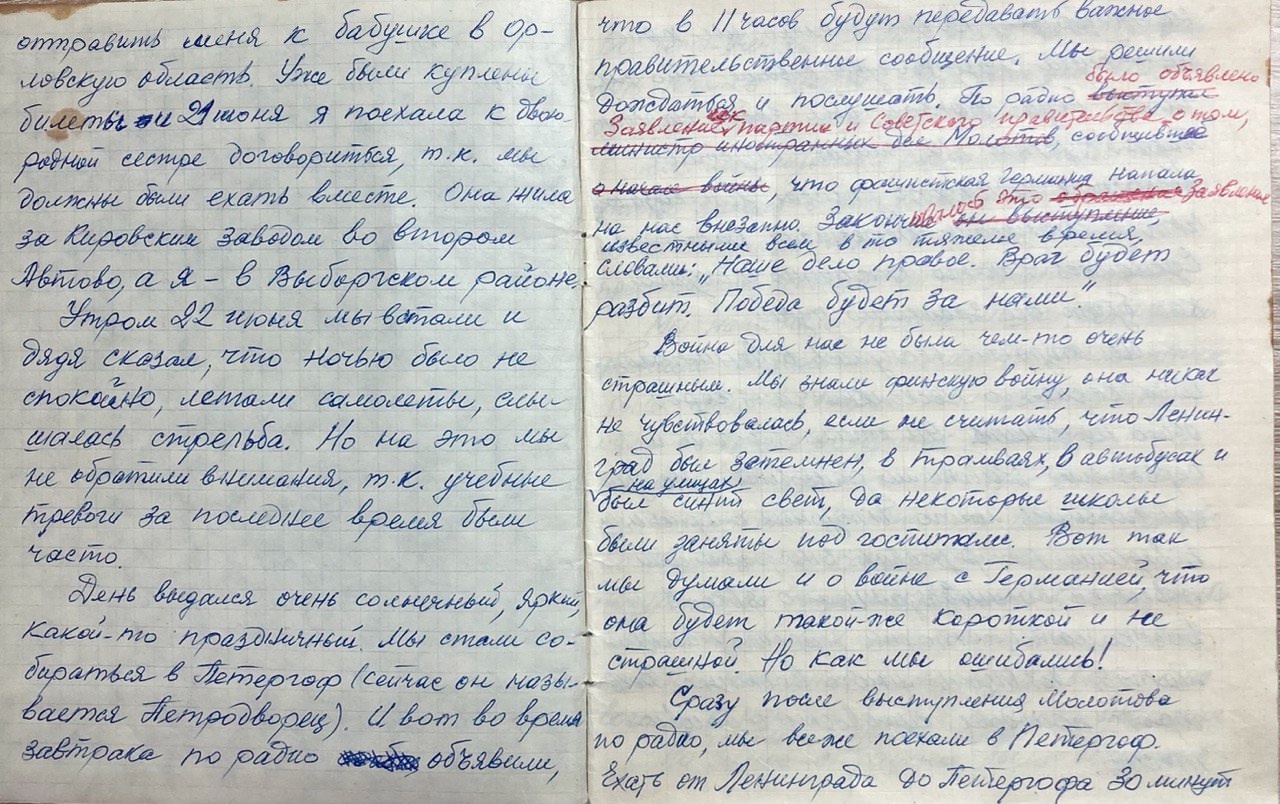 отправить меня к бабушке в Ор-
ловскую область. Уже были куплены
билеты и 21 июня я поехала к двою-
родной сестре договориться, т.к. мы
должны были ехать вместе. Она жила
за Кировским заводом во втором
Автово, а я – в Выборгском районе.
Утром 22 июня мы встали и
дядя сказал, что ночью было не
спокойно, летали самолеты, слы-
шалась стрельба. Но на это мы
не обратили внимания, т.к. учебные
тревоги за последнее время были
часто.
День выдался очень солнечный, яркий,
какой-то праздничный. Мы стали со-
бираться в Петергоф (сейчас он назы-
вается Петродворец). И вот во время
завтрака по радио объявили,
что в 11 часов будут передавать важное
правительственное сообщение. Мы решили
было объявлено
дождаться и послушать. По радио выступил
Заявление ЦК партии и Советского правительства о том,
министр иностранных дел Молотов, сообщивший
о начале войны, что фашистская Германия напала
на нас внезапно. Закончилось это обращение заявление
он выступление,
известными всем в то тяжелое время,
словами: „Наше дело правое. Враг будет
разбит. Победа будет за нами".
Война для нас не была чем-то очень
страшным. Мы знали финскую войну, она никак
не чувствовалась, если не считать, что Ленин-
град был затемнен, в трамваях, в автобусах и
на улицах
был синий свет, да некоторые школы
были заняты под госпитали. Вот так
мы думали и о войне с Германией, что
она будет такой-же короткой и не
страшной. Но как мы ошибались!
Сразу после выступления Молотова
по радио, мы все же поехали в Петергоф.
Ехать от Ленинграда до Петергофа 30 минут